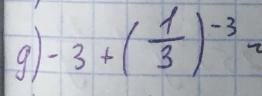 g) -3 + (1/3)^-3 =